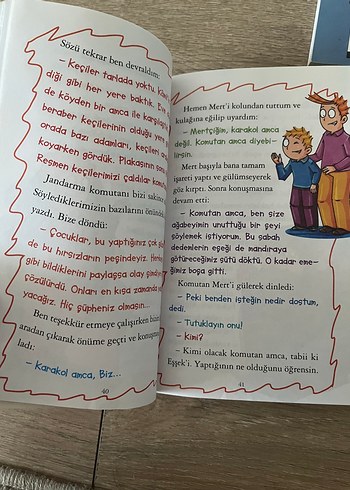 Sözü tekrar ben devraldım:
– Keçiler tarlada yoktu.
diği gibi her yere baktık.
de köyden bir amca ile
beraber keçilerinin olduğu yere
orada bazı adamları, keçileri
koyarken gördük. Plakasının
Resmen keçilerimizi çaldılar
Jandarma komutanı bizi
Söylediklerimizin bazılarını önündeki
yazdı. Bize döndü:
– Çocuklar, bu yaptığınız çok
de bu hırsızların peşindeyiz.
gibi bildiklerini paylaşsa olay şimdiye
çözülürdü. Onları en kısa zamanda
yacağız. Hiç şüpheniz olmasın...
Ben teşekkür etmeye çalışırken
aradan çıkarak önüme geçti ve
ladı:
– Karakol amca, Biz...
40
Hemen Mert'i kolundan tuttum ve
kulağına eğilip uyardım:
– Mertçiğim, karakol amca
değil. Komutan amca diyebi-
lirsin.
Mert başıyla bana tamam
işareti yaptı ve gülümseyerek
göz kırptı. Sonra konuşmasına
devam etti:
– Komutan amca, ben size
ağabeyimin unuttuğu bir şeyi
söylemek istiyorum. Bu sabah
dedemlerin eşeği de mandıraya
götüreceğimiz sütü döktü. O kadar eme-
ğimiz boşa gitti.
Komutan Mert'i gülerek dinledi:
– Peki benden isteğin nedir dostum,
dedi.
– Tutuklayın onu!
– Kimi?
– Kimi olacak komutan amca, tabii ki
Eşşek'i. Yaptığının ne olduğunu öğrensin.
41